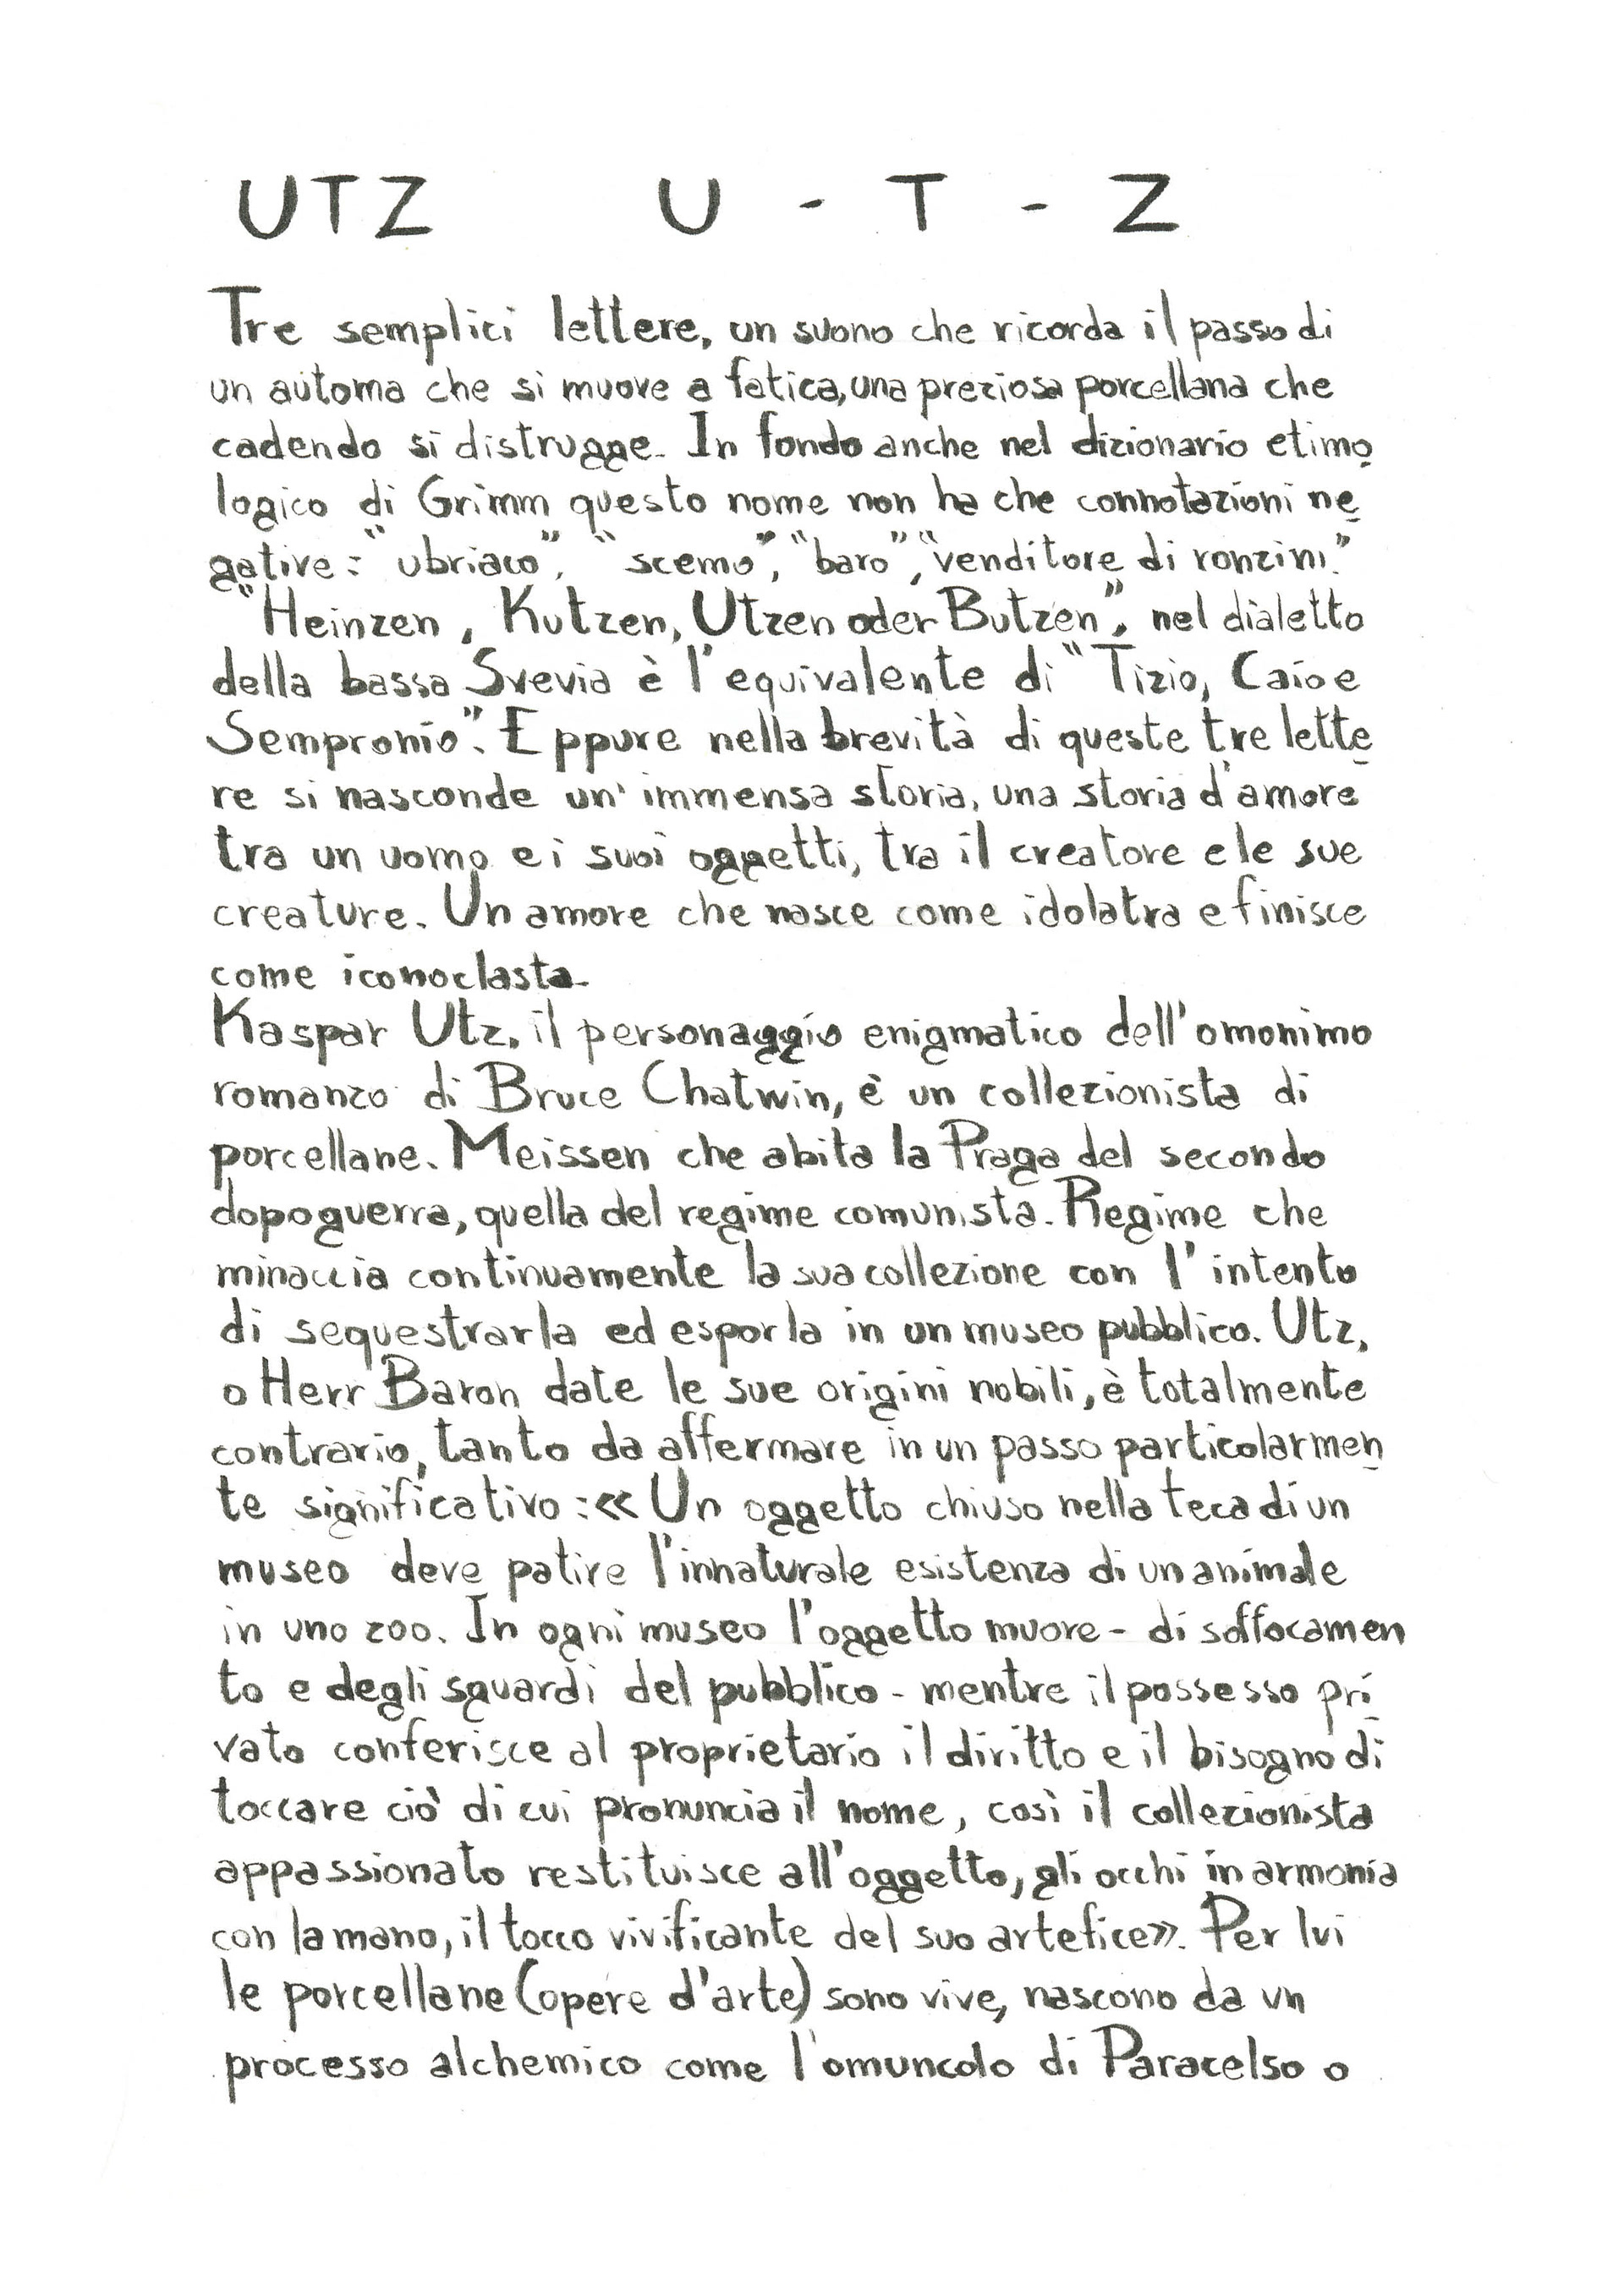 UTZ U - T - Z
Tre semplici lettere, un suono che ricorda il passo di
un automa che si muove a fatica, una preziosa porcellana che
cadendo si distrugge. In fondo anche nel dizionario etimo
logico di Grimm questo nome non ha che connotazioni ne
gative: "ubriaco", "scemo", "baro", "venditore di ronzini."
"Heinzen, Kutzen, Utzen oder Butzen", nel dialetto
della bassa Svevia è l'equivalente di "Tizio, Caio e
Sempronio". Eppure nella brevità di queste tre lette
re si nasconde un' immensa storia, una storia d'amore
tra un uomo e i suoi oggetti, tra il creatore e le sue
creature. Un amore che nasce come idolatra e finisce
come iconoclasta.
Kaspar Utz, il personaggio enigmatico dell'omonimo
romanzo di Bruce Chatwin, è un collezionista di
porcellane. Meissen che abita la Praga del secondo
dopoguerra, quella del regime comunista. Regime che
minaccia continuamente la sua collezione con l'intento
di sequestrarla ed esporla in un museo pubblico. Utz,
o Herr Baron date le sue origini nobili, è totalmente
contrario, tanto da affermare in un passo particolarmen
te significativo: «Un oggetto chiuso nella teca di un
museo deve patire l'innaturale esistenza di un animale
in uno zoo. In ogni museo l'oggetto muore - di soffocamen
to e degli sguardi del pubblico - mentre il possesso pri
vato conferisce al proprietario il diritto e il bisogno di
toccare ciò di cui pronuncia il nome, così il collezionista
appassionato restituisce all'oggetto, gli occhi in armonia
con la mano, il tocco vivificante del suo artefice». Per lui
le porcellane (opere d'arte) sono vive, nascono da un
processo alchemico come l'omuncolo di Paracelso o